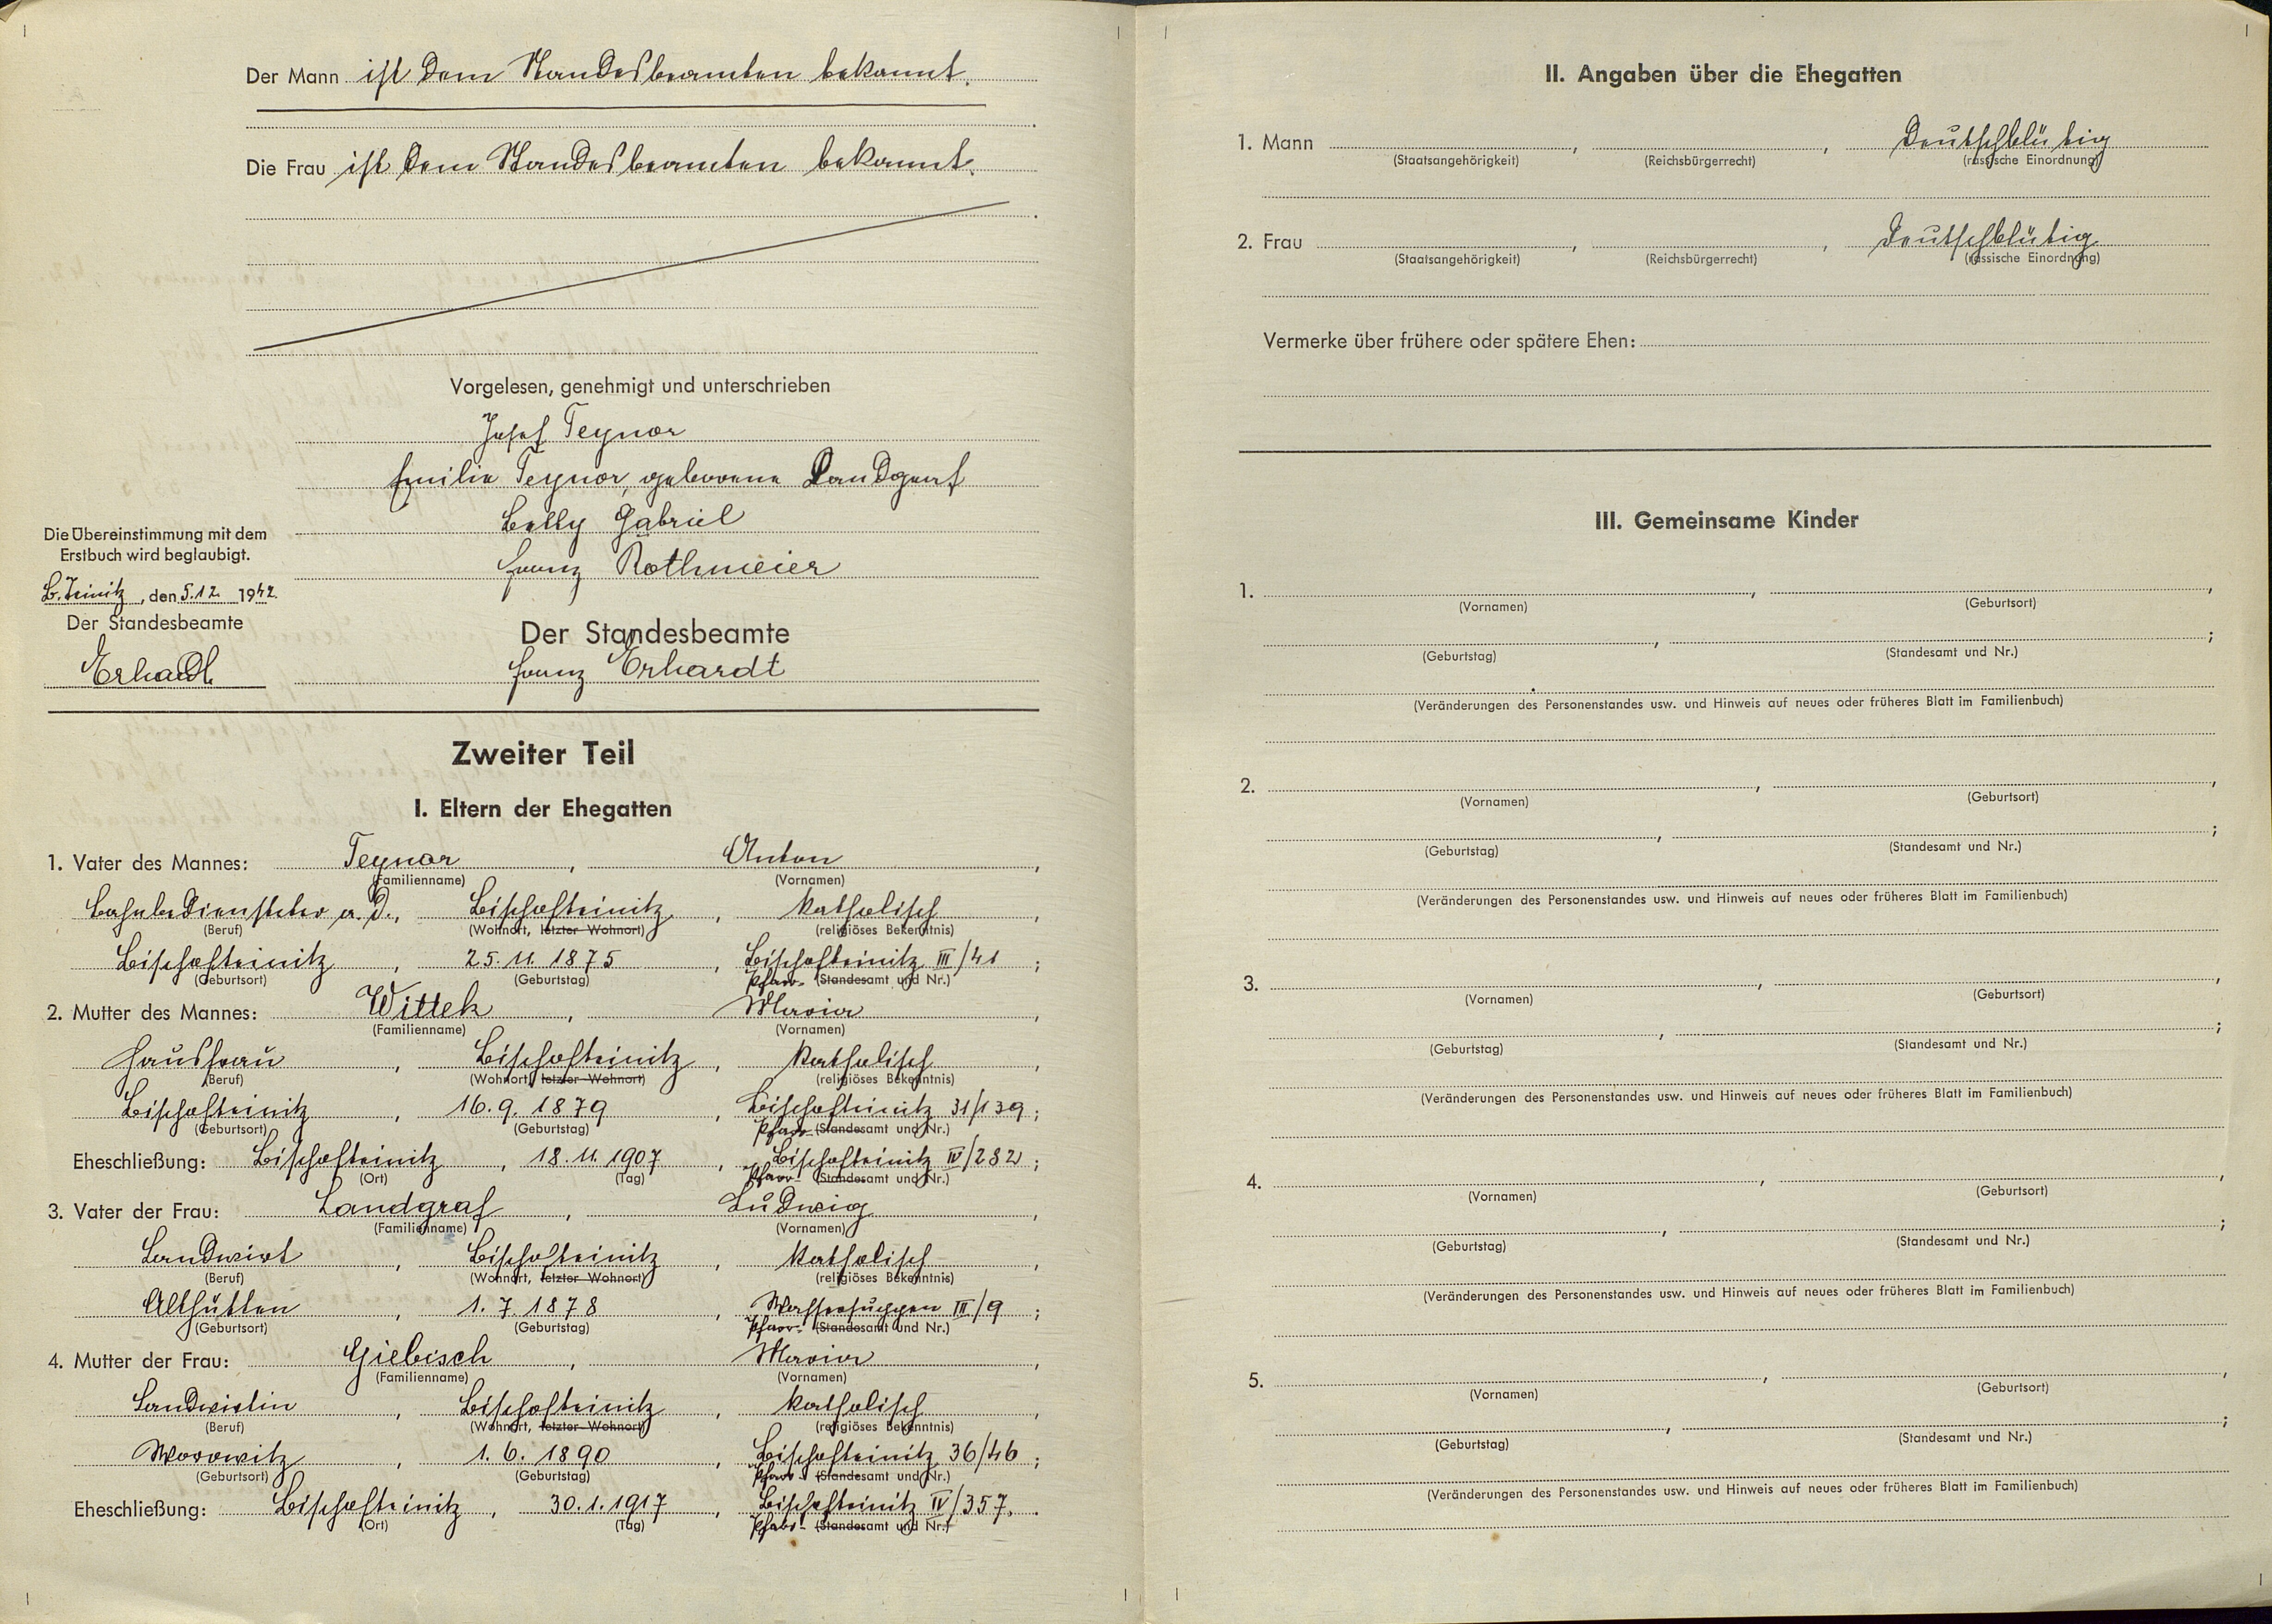 Der Mann ist dem Standesbeamten bekannt.
Die Frau ist dem Standesbeamten bekannt.
Vorgelesen, genehmigt und unterschrieben
Josef Teynor
Emilie Teynor, geborene Landgraf
Gabriel
Franz Rothmeier
Die Übereinstimmung mit dem
Erstbuch wird beglaubigt.
B. Teinitz, den 5.12. 1942.
Der Standesbeamte
Erhardt
Der Standesbeamte
Franz Erhardt
Zweiter Teil
I. Eltern der Ehegatten
1. Vater des Mannes: Teynor, Anton,
(Familienname) (Vornamen)
Bahnbediensteter a. D., Bischofteinitz, katholisch,
(Beruf) (Wohnort, letzter Wohnort) (religiöses Bekenntnis)
Bischofteinitz, 25.11.1875, Bischofteinitz III/41;
(Geburtsort) (Geburtstag) Pfarr- (Standesamt und Nr.)
2. Mutter des Mannes: Wittek, Maria,
(Familienname) (Vornamen)
Hausfrau, Bischofteinitz, katholisch,
(Beruf) (Wohnort, letzter Wohnort) (religiöses Bekenntnis)
Bischofteinitz, 16.9.1879, Bischofteinitz 31/139;
(Geburtsort) (Geburtstag) Pfarr- (Standesamt und Nr.)
Eheschließung: Bischofteinitz, 18.11.1907, Bischofteinitz IV/282;
(Ort) (Tag) Pfarr- (Standesamt und Nr.)
3. Vater der Frau: Landgraf, Ludwig,
(Familienname) (Vornamen)
Landwirt, Bischofteinitz, katholisch,
(Beruf) (Wohnort, letzter Wohnort) (religiöses Bekenntnis)
Althütten, 1.7.1878, Wassersuppen III/9;
(Geburtsort) (Geburtstag) Pfarr- (Standesamt und Nr.)
4. Mutter der Frau: Giebisch, Maria,
(Familienname) (Vornamen)
Landwirtin, Bischofteinitz, katholisch,
(Beruf) (Wohnort, letzter Wohnort) (religiöses Bekenntnis)
Worowitz, 1.6.1890, Bischofteinitz 36/46;
(Geburtsort) (Geburtstag) Pfarr- (Standesamt und Nr.)
Eheschließung: Bischofteinitz, 30.1.1917, Bischofteinitz IV/357.
(Ort) (Tag) Pfarr- (Standesamt und Nr.)
II. Angaben über die Ehegatten
1. Mann , , Deutschblütig
(Staatsangehörigkeit) (Reichsbürgerrecht) (rassische Einordnung)
2. Frau , , Deutschblütig
(Staatsangehörigkeit) (Reichsbürgerrecht) (rassische Einordnung)
Vermerke über frühere oder spätere Ehen:
III. Gemeinsame Kinder
1. , ,
(Vornamen) (Geburtsort)
, ;
(Geburtstag) (Standesamt und Nr.)
(Veränderungen des Personenstandes usw. und Hinweis auf neues oder früheres Blatt im Familienbuch)
2. , ,
(Vornamen) (Geburtsort)
, ;
(Geburtstag) (Standesamt und Nr.)
(Veränderungen des Personenstandes usw. und Hinweis auf neues oder früheres Blatt im Familienbuch)
3. , ,
(Vornamen) (Geburtsort)
, ;
(Geburtstag) (Standesamt und Nr.)
(Veränderungen des Personenstandes usw. und Hinweis auf neues oder früheres Blatt im Familienbuch)
4. , ,
(Vornamen) (Geburtsort)
, ;
(Geburtstag) (Standesamt und Nr.)
(Veränderungen des Personenstandes usw. und Hinweis auf neues oder früheres Blatt im Familienbuch)
5. , ,
(Vornamen) (Geburtsort)
, ;
(Geburtstag) (Standesamt und Nr.)
(Veränderungen des Personenstandes usw. und Hinweis auf neues oder früheres Blatt im Familienbuch)